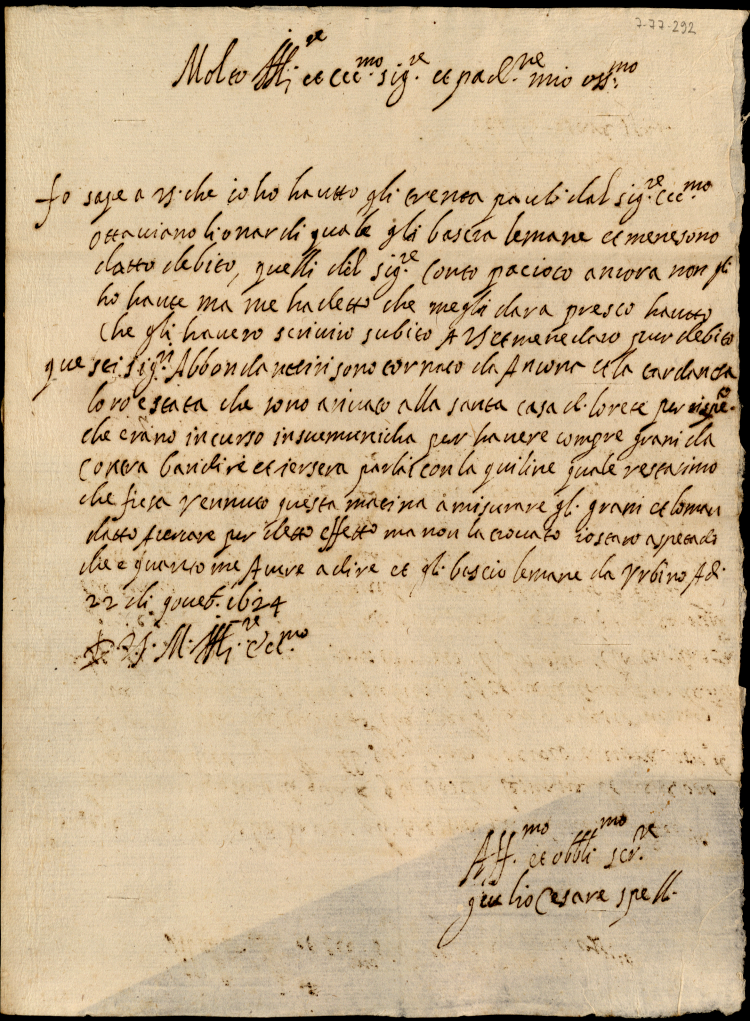 7-77-292
Molto Ill.re et ecc.mo sig.re et pad.ne mio oss.mo
fo sape a VS. che io ho hautto gli trenta pauli dal sig.re ecc.mo
Ottaviano lionardi quale gli bascia lemane et menesono
datto debito, quelli del sig.re Conto pacioco ancora non gli
ho haute ma me ha detto che megli dara presto hautto
che gli havero scrivio subito A VS et mene daro pur debito
que sti sig.ri Abbondantini sono tornato da Ancona et la tardanza
loro e stata che sono arivato alla santa casa d. loreto per
che erano incurso in scumunicha per havere compre grani da
contra bandire et iersera parlai con la quiline quale restasimo
che fusa vennuto questa matina a misurare gl. grani et loman
datto per detto effetto ma non la trovato aspetado
che e quanto me Avere adire et gli bascio lemane da Urbino Adi
22 di 1624
D VS. M. Ill.re Ecc.mo
Aff.mo et obbli.mo ser.re
giulio Cesare spell.